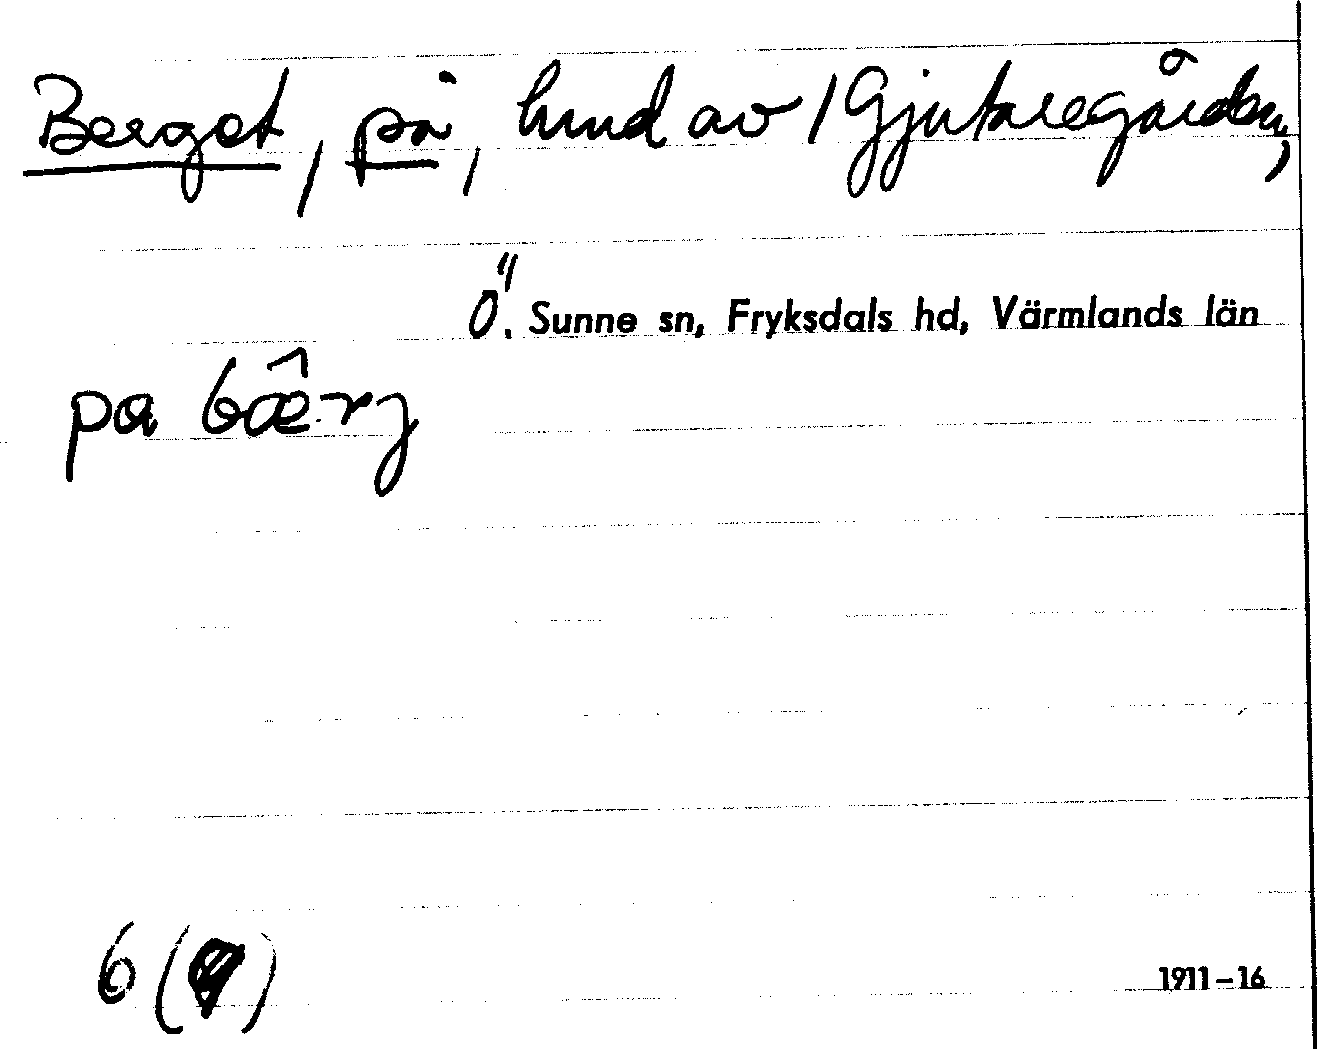 Berget, på, hmd av /Gjutaregården,
Ö. Sunne sn, Fryksdals hd, Värmlands län
pa bæ̂rj
6 (9)
1911–16